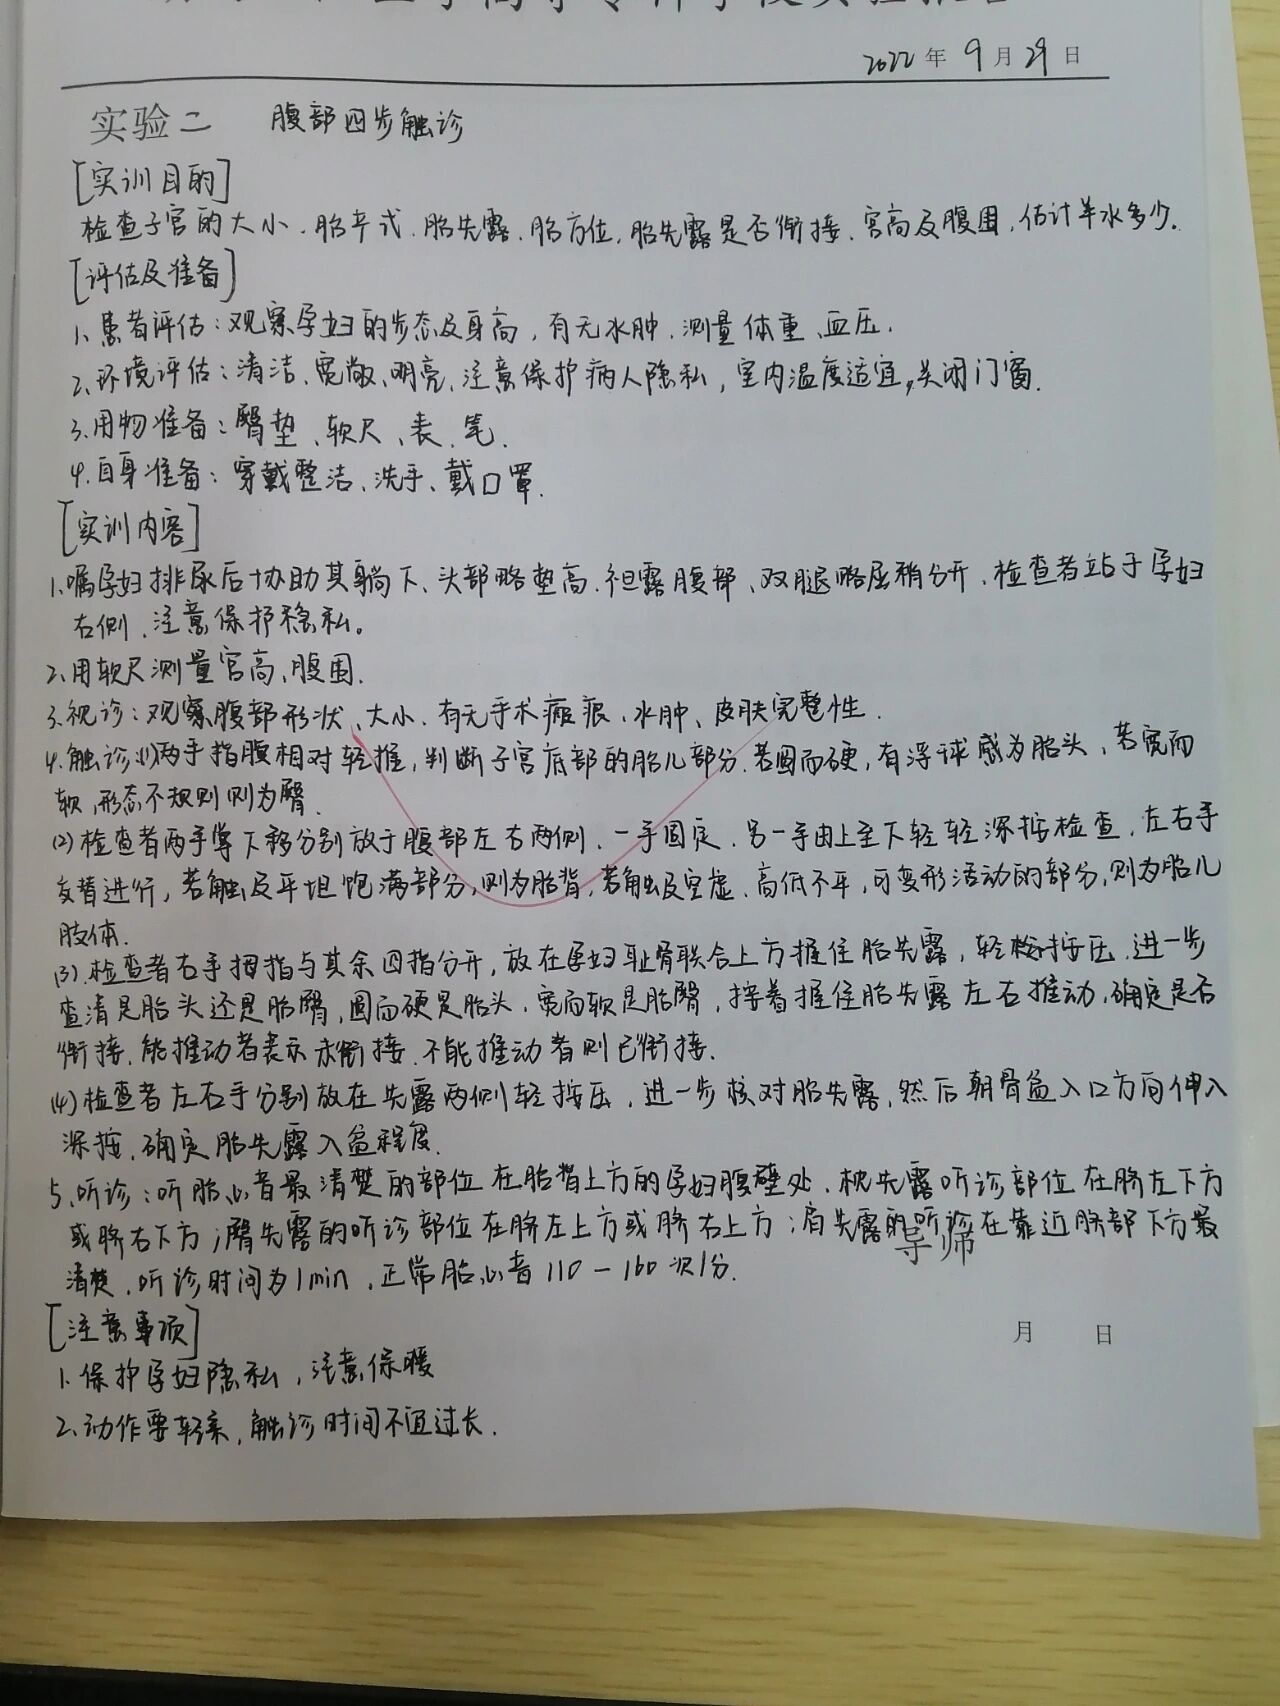 2022年9月29日
实验二 腹部四步触诊
[实训目的]
检查子宫的大小、胎产式、胎先露、胎方位,胎先露是否衔接、宫高及腹围,估计羊水多少。
[评估及准备]
1、患者评估:观察孕妇的步态及身高,有无水肿、测量体重、血压.
2、环境评估:清洁、宽敞、明亮、注意保护病人隐私,室内温度适宜,关闭门窗.
3、用物准备:臀垫、软尺、表、笔.
4、自身准备:穿戴整洁、洗手、戴口罩.
[实训内容]
1、嘱孕妇排尿后协助其躺下、头部略垫高、袒露腹部、双腿略屈稍分开、检查者站于孕妇
右侧、注意保护隐私。
2、用软尺测量宫高、腹围.
3、视诊:观察腹部形状、大小、有无手术瘢痕、水肿、皮肤完整性.
4、触诊(1)两手指腹相对轻推,判断子宫底部的胎儿部分.若圆而硬,有浮球感为胎头、若宽而
软,形态不规则则为臀.
(2)检查者两手掌下移分别放于腹部左右两侧、一手固定、另一手由上至下轻轻深按检查,左右手
交替进行,若触及平坦饱满部分,则为胎背,若触及空虚、高低不平,可变形活动的部分,则为胎儿
肢体.
(3).检查者右手拇指与其余四指分开,放在孕妇耻骨联合上方握住胎先露,轻按压、进一步
查清是胎头还是胎臀,圆而硬是胎头、宽而软是胎臀,接着握住胎先露左右推动,确定是否
衔接、能推动者表示未衔接、不能推动者则已衔接.
(4)检查者左右手分别放在先露两侧轻按压,进一步核对胎先露,然后朝骨盆入口方向伸入
深按,确定胎先露入盆程度.
5、听诊:听胎心音最清楚的部位在胎背上方的孕妇腹壁处、枕先露听诊部位在脐左下方
或脐右下方;臀先露的听诊部位在脐左上方或脐右上方;肩先露的听诊在靠近脐部下方最
导师
清楚、听诊时间为1min,正常胎心音110-160次/分.
[注意事项]
月 日
1、保护孕妇隐私,注意保暖
2、动作要轻柔,触诊时间不宜过长.